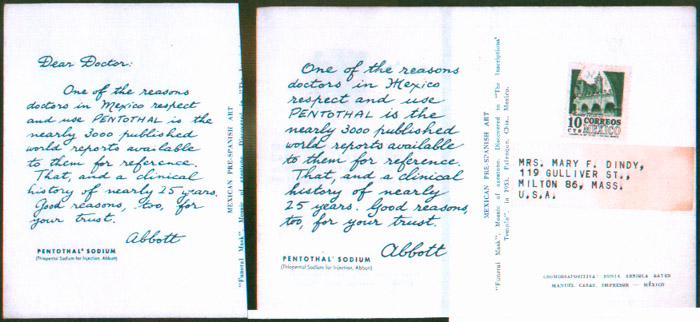 Dear Doctor:
One of the reasons
doctors in Mexico respect
and use PENTOTHAL is the
nearly 3000 published
world reports available
to them for reference.
That, and a clinical
history of nearly 25 years.
Good reasons, too, for
your trust.
Abbott
PENTOTHAL® SODIUM
(Thiopental Sodium for Injection, Abbott)
MEXICAN PRE-SPANISH ART
One of the reasons
doctors in Mexico
respect and use
PENTOTHAL is the
nearly 3000 published
world reports available
to them for reference.
That, and a clinical
history of nearly
25 years. Good reasons,
too, for your trust.
Abbott
PENTOTHAL® SODIUM
(Thiopental Sodium for Injection, Abbott)
MEXICAN PRE-SPANISH ART
"Funeral Mask". Mosaic of someone. Discovered in "The Inscriptions'
Temple", in 1952. Palenque, Chis. Mexico.
10 CORREOS
CTS MEXICO
MRS. MARY F. DINDY,
119 GULLIVER ST.,
MILTON 86, MASS.
U.S.A.
MANUEL CASAS, IMPRESOR — MÉXICO